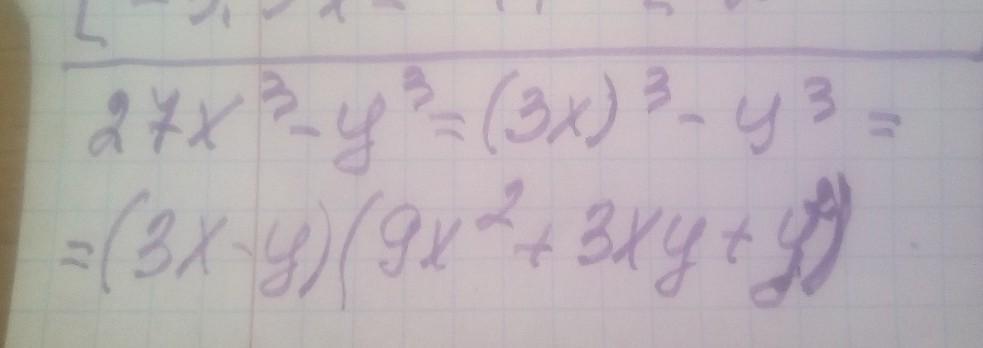 27x³ - y³ = (3x)³ - y³ =
= (3x - y)(9x² + 3xy + y²)